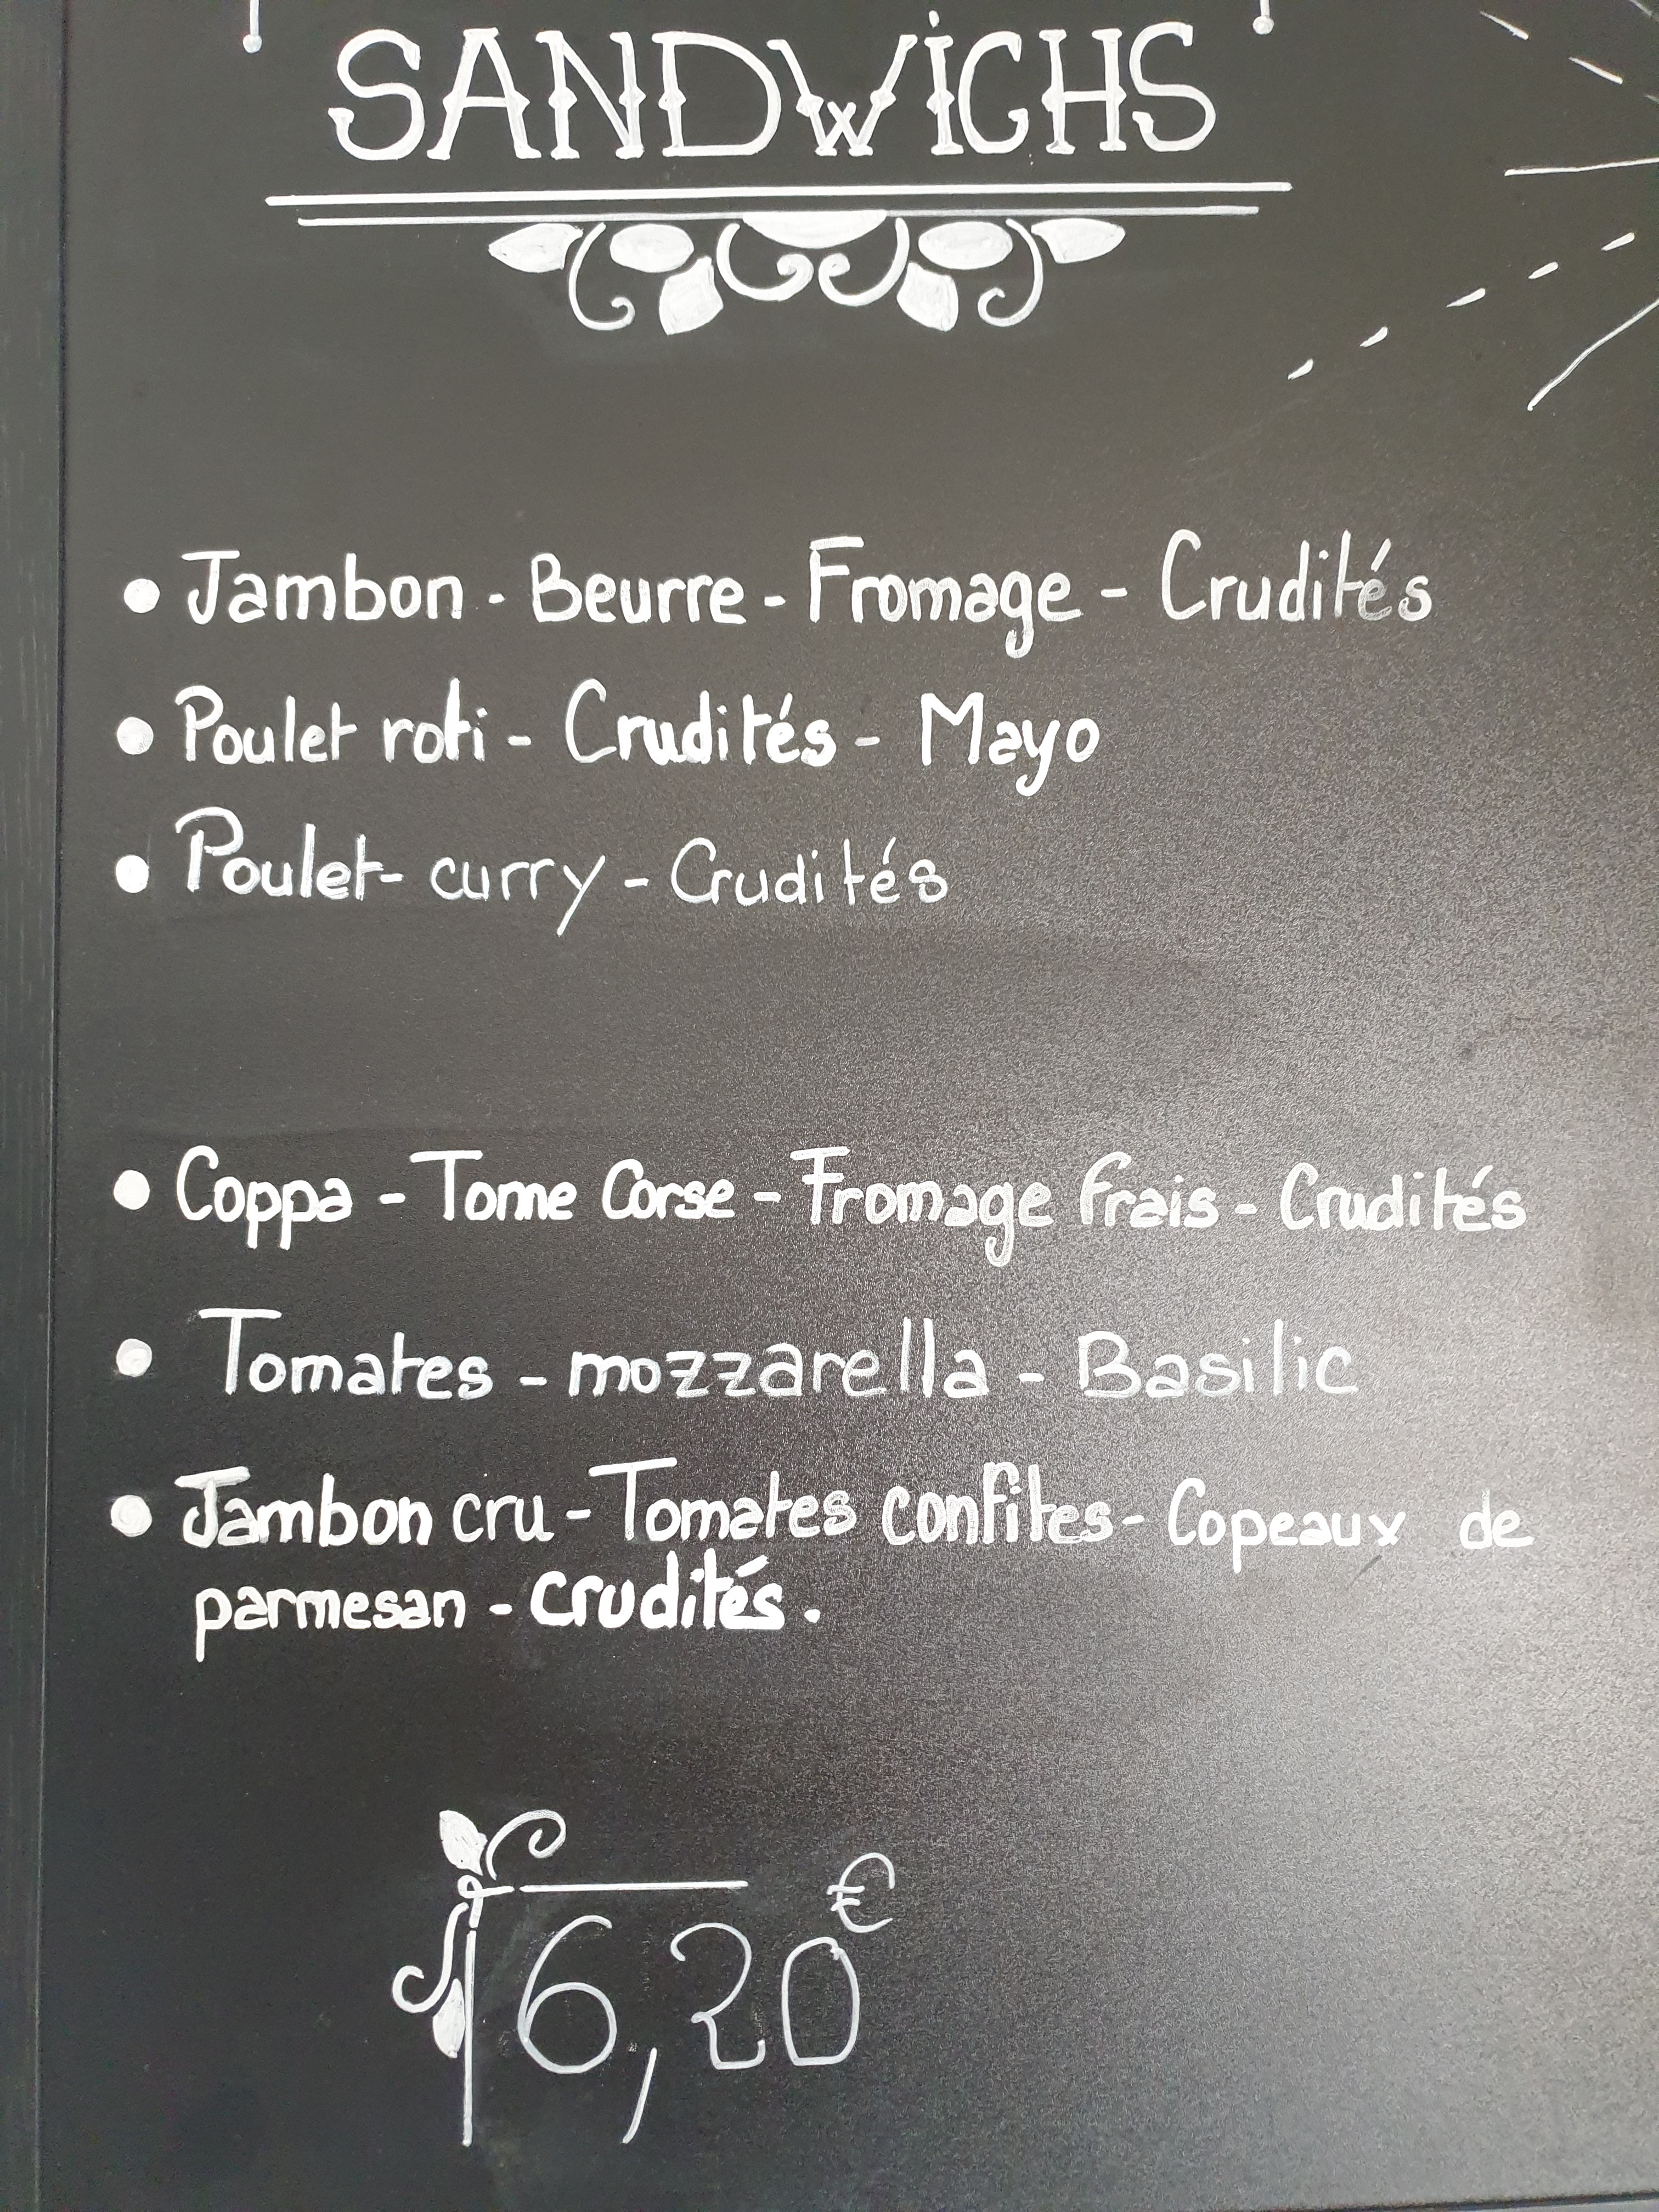 SANDWiCHS
• Jambon - Beurre - Fromage - Crudités
• Poulet roti - Crudités - Mayo
• Poulet - curry - Crudités
• Coppa - Tome Corse - Fromage frais - Crudités
• Tomates - mozzarella - Basilic
• Jambon cru - Tomates confites - Copeaux de
parmesan - crudités.
6,20€